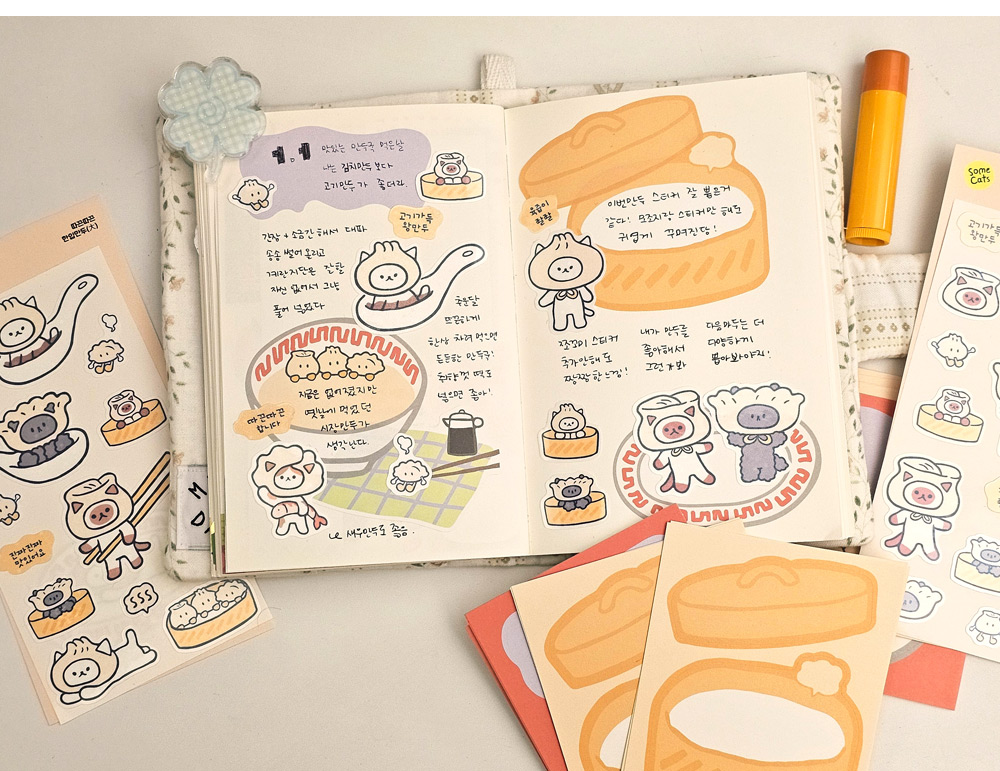 1.1
맛있는 만두국 먹은날
나는 김치만두보다
고기만두가 좋더라.
고기가득
왕만두
간장 + 소금간 해서 대파
송송 썰어 올리고
계란지단은 잔할
자신 없어서 그냥
풀어 넣었다
추운날
뜨끈하게
한상 차려 먹으면
든든한 만두국!
취향껏 떡도
넣으면 좋아!
지금은 없어졌지만
옛날에 먹었던
시장만두가
생각난다.
따끈따끈
합니다
새우만두도 좋음.
육즙이
팡팡
이번만두 스티커 잘 뽑은거
같다! 모조지랑 스티커만 해도
귀엽게 꾸며진당!
쪼꼬미 스티커
추가안해도
짱짱한느낌!
내가 만두를
좋아해서
그런가봐
다음만두는 더
다양하게
뽑아봐야지!
M
D
따끈따끈
한입만두(치)
진짜진짜
맛있어요
Some
Cats
고기가득
왕만두